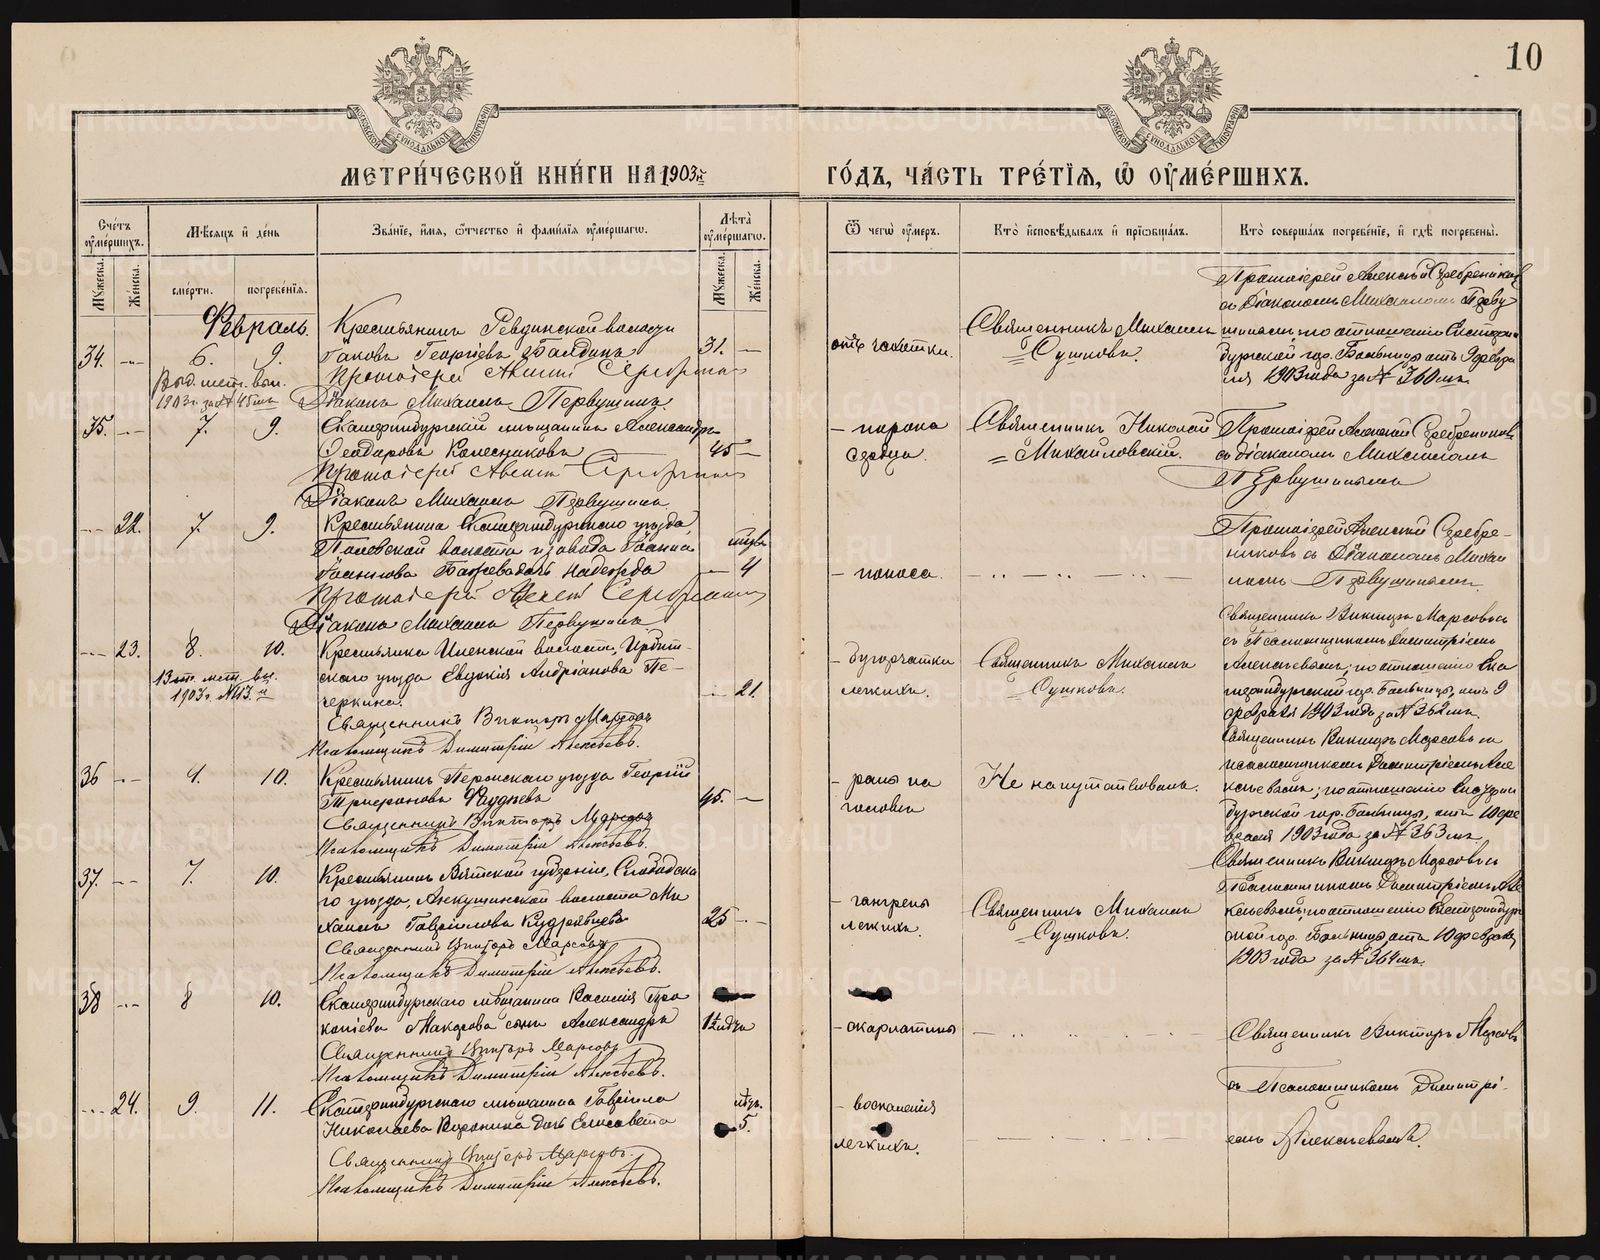 10
МЕТРИ́ЧЕСКОЙ КНИ́ГИ НА 1903й ГО́ДЪ, ЧА́СТЬ ТРЕ́ТІѦ, Ѿ ОУ҆МЕ́РШИХЪ.
Сче́тъ оу҆ме́ршихъ.
Мꙋжеска.
Же́нска.
Мѣ́сяцъ и҆ де́нь
сме́рти.
погребе́нїѧ.
Зва́нїе, и҆́мѧ, ѻ҆́тчество и҆ фами́лїѧ оу҆ме́ршагѡ.
Лѣ́та оу҆ме́ршагѡ.
Мꙋжеска.
Же́нска.
Ѿ чегѡ̀ оу҆́меръ.
Кто̀ и҆сповѣ́дывалъ и҆ прїѡбща́лъ.
Кто̀ соверша́лъ погребе́нїе, и҆ гдѣ̀ погребены̀.
Февраль.
34. 6. 9.
Выд. мет. вып.
1903 г. за № 45
Крестьянинъ Ревдинской волости
Іаковъ Георгіевъ Балдинъ
31.
Протоіерей Алексій Серебренниковъ
Діаконъ Михаилъ Первушинъ.
отъ чахотки.
Священникъ Михаилъ
Сушковъ.
Протоіерей Алексій Серебрениковъ
съ Діакономъ Михаиломъ Перву
шинымъ, по отношенію Екатерин
дургской гор. Больницы отъ 9 февра
ля 1903 года за № 360
35. 7. 9.
Екатеринбургскій мѣщанинъ Александръ
Ѳеодоровъ Колесниковъ
45
Протоіерей Алексій
Діаконъ Михаилъ Первушинъ
порока
сердца.
Священникъ Николай
Михайловскій.
Протоіерей Алексій Серебрениковъ
съ діакономъ Михаиломъ
Первушинымъ
22. 7. 9.
Крестьянина Екатеринбургскаго уѣзда
Полевской волости и завода Іоанна
Іоаннова дочь Надежда
4
Протоіерей
Діаконъ Михаилъ Первушинъ
поноса.
Протоіерей Алексій Серебре-
никовъ съ Діакономъ Михаи
ломъ Первушинымъ
23. 8. 10.
1903 г. № 113.
Крестьянка волости, Ирбит-
скаго уѣзда Евдокія Андріанова Пе-
черкина.
21.
Священникъ Викторъ Марсовъ
Псаломщикъ Димитрій Алексѣевъ.
бугорчатки
легкихъ.
Священникъ Михаилъ
Сушковъ.
Священникъ Викторъ Марсовъ
съ Псаломщикомъ Димитріемъ
Алексѣевымъ; по отношенію Ека
теринбургской гор. Больницы, отъ 9
февраля 1903 года за № 362
36 4. 10.
Крестьянинъ Пермскаго уѣзда Георгій
Трифоновъ
45.
Священникъ Викторъ Марсовъ
Псаломщикъ Димитрій Алексѣевъ.
раны на
головѣ
Не напутствованъ.
Священникъ Викторъ Марсовъ съ
псаломщикомъ Димитріемъ Але
ксѣевымъ; по отношенію Екатерин
бургской гор. Больницы, отъ 10 фе
враля 1903 года за № 363
37. 7. 10.
Крестьянинъ Вятской губерніи, Слободска
го уѣзда, волости Ми
хаилъ Гавріиловъ Кудрявцевъ
25
Священникъ Викторъ Марсовъ
Псаломщикъ Димитрій Алексѣевъ.
гангрены
легкихъ.
Священникъ Михаилъ
Сушковъ.
Священникъ Викторъ Марсовъ съ
Псаломщикомъ Димитріемъ Але
ксѣевымъ; по отношенію Екатеринбург
ской гор. Больницы отъ 10 февраля
1903 года за № 364
38 8 10.
Екатеринбургскаго мѣщанина Василія Про
копіева сынъ Александръ
1½ года
Священникъ Викторъ Марсовъ
Псаломщикъ Димитрій Алексѣевъ.
скарлатины
Священникъ Викторъ Марсовъ
съ Псаломщикомъ Димитрі-
емъ Алексѣевымъ.
24. 9. 11.
Екатеринбургскаго мѣщанина Гавріила
Николаева Воронина дочь Елисавета
5.
Священникъ Викторъ Марсовъ.
Псаломщикъ Димитрій Алексѣевъ.
воспаленія
легкихъ.
METRIKI.GASO-URAL.RU